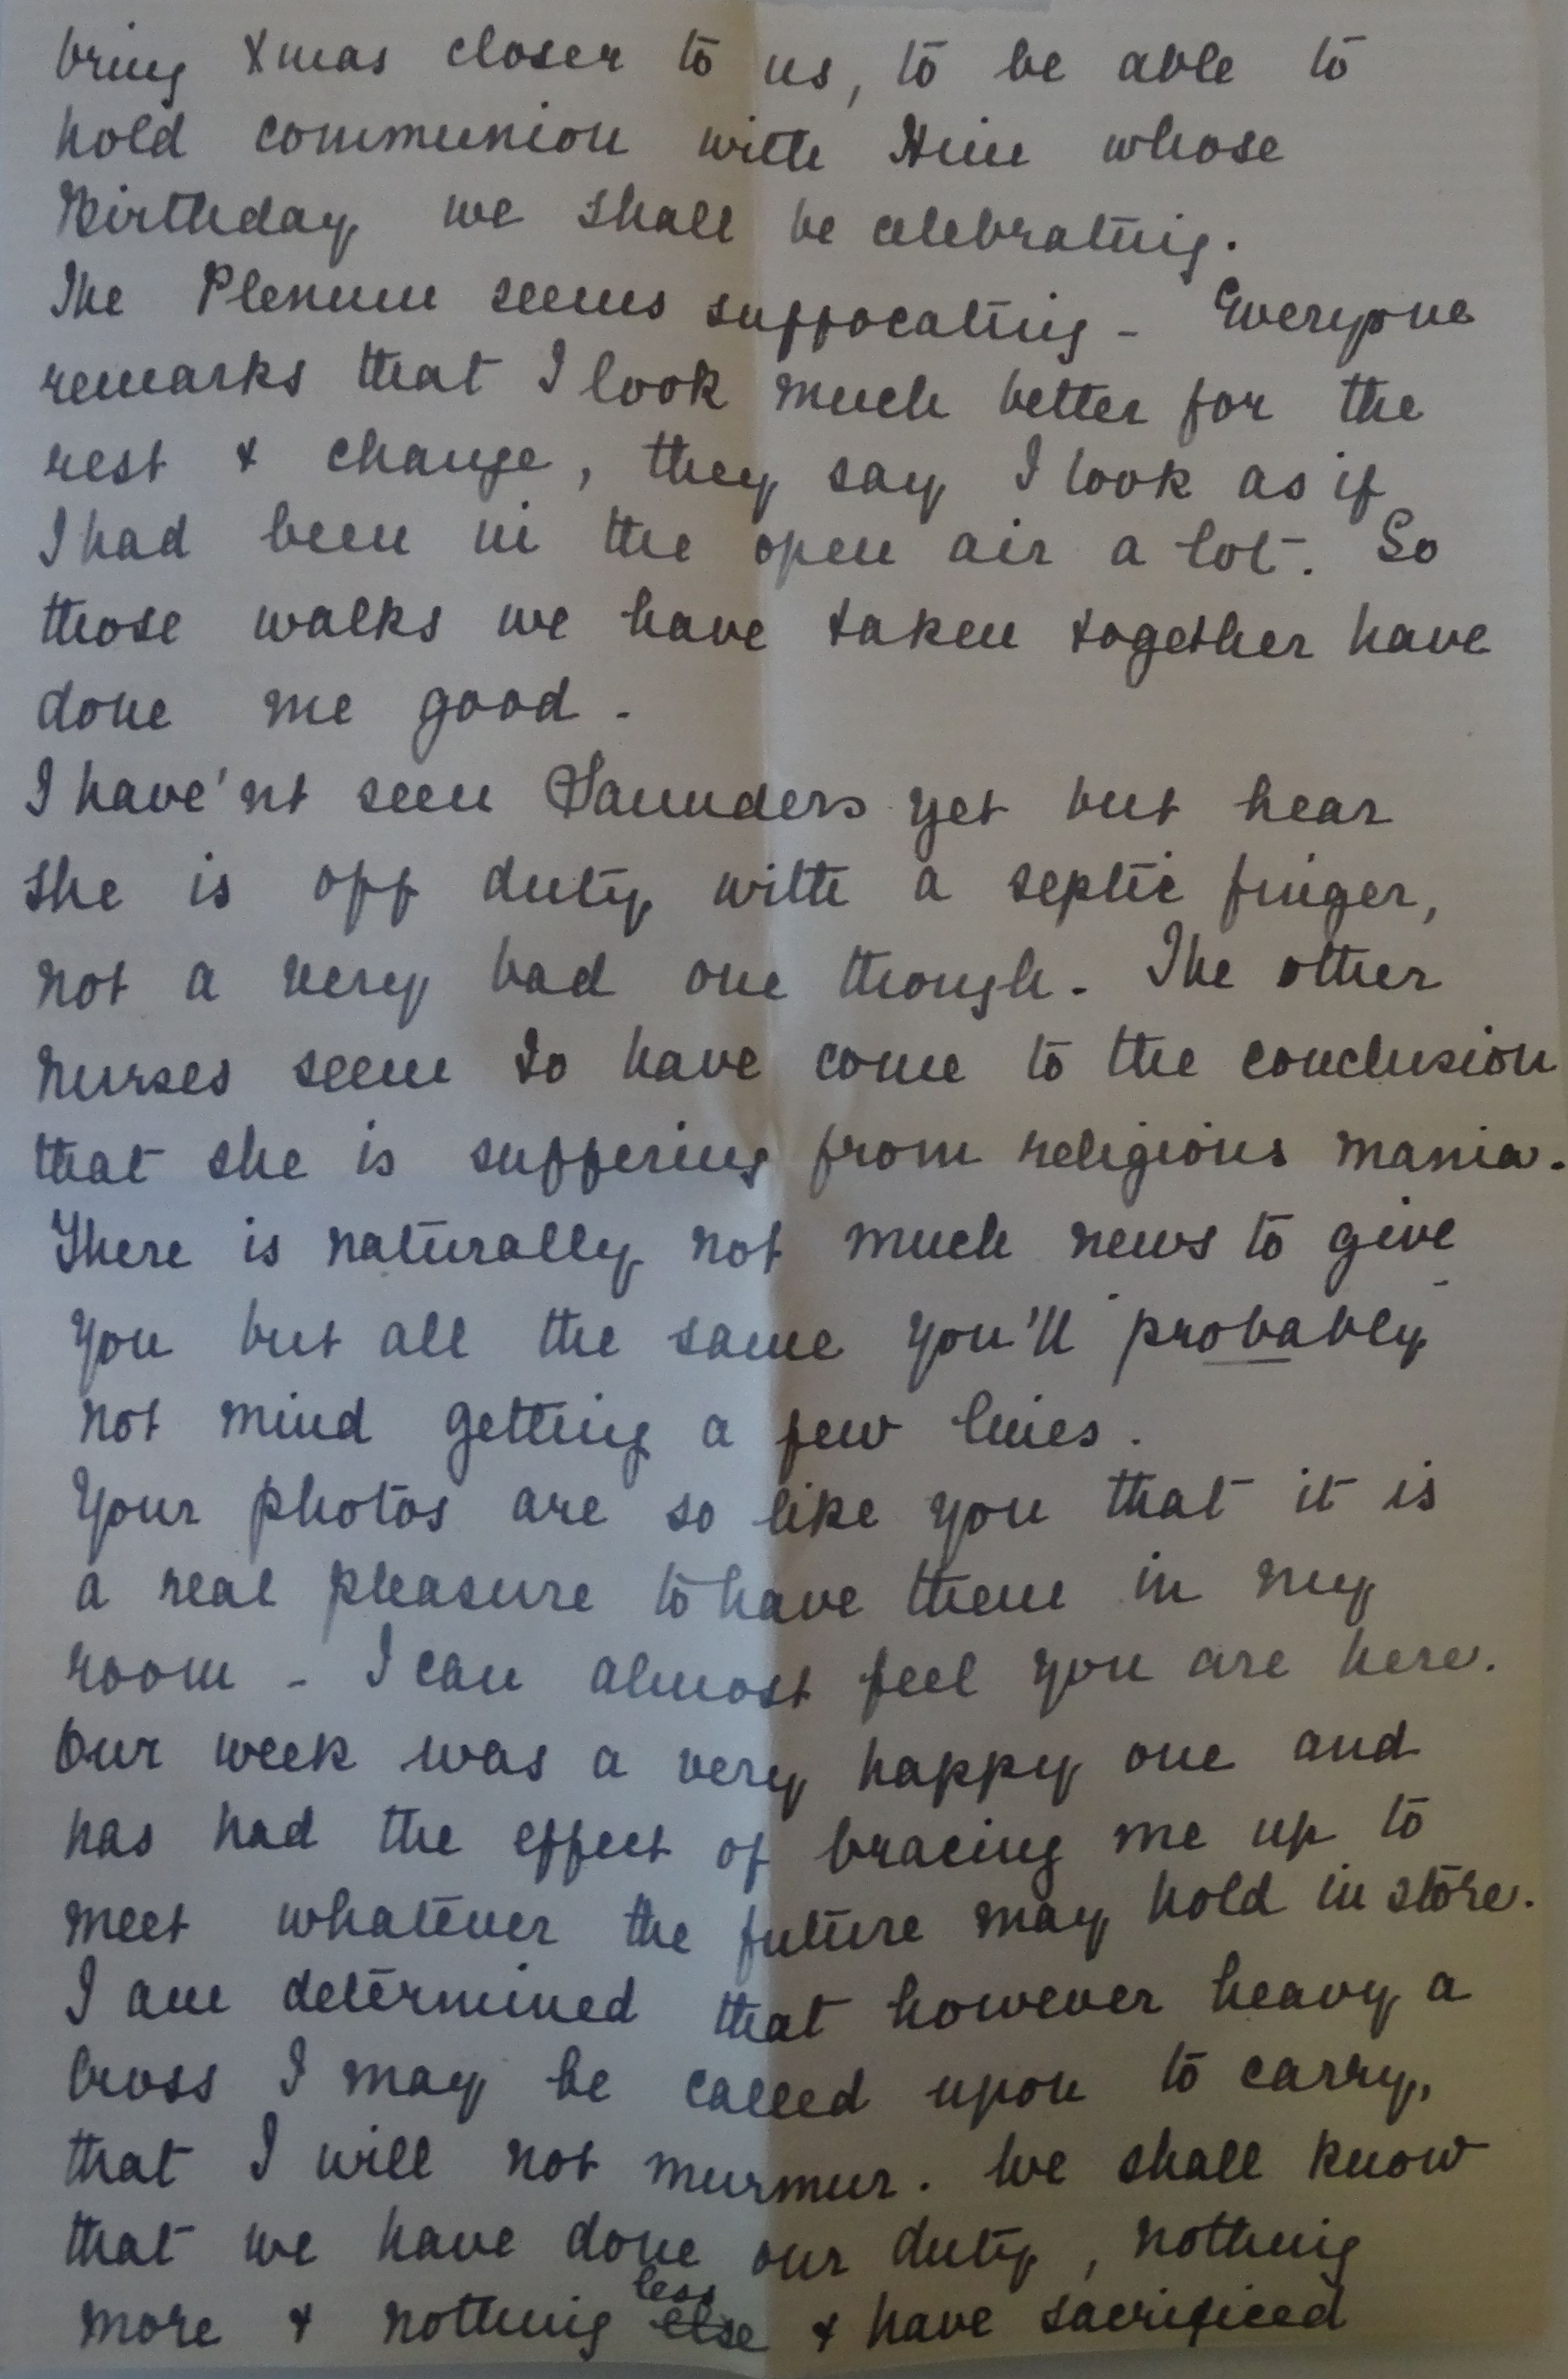 bring Xmas closer to us, to be able to
hold communion with Him whose
Birthday we shall be celebrating.
The Plenum seems suffocating - Everyone
remarks that I look much better for the
rest & change, they say I look as if
I had been in the open air a lot. So
those walks we have taken together have
done me good -
I have'nt seen Saunders yet but hear
she is off duty with a septic finger,
not a very bad one though. The other
nurses seem to have come to the conclusion
that she is suffering from religious mania.
There is naturally not much news to give
you but all the same you'll "probably"
not mind getting a few lines.
Your photos are so like you that it is
a real pleasure to have them in my
room - I can almost feel you are here.
Our week was a very happy one and
has had the effect of bracing me up to
meet whatever the future may hold in store.
I am determined that however heavy a
Cross I may be called upon to carry,
that I will not murmur. We shall know
that we have done our duty, nothing
more & nothing else less & have sacrificed